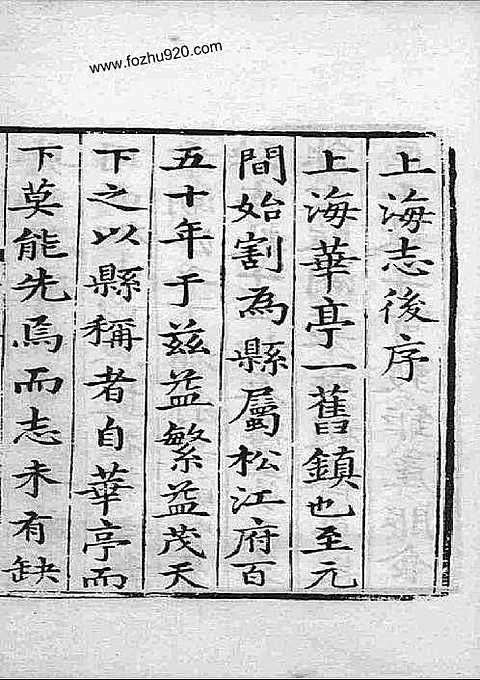 www.fozhu920.com
上海志後序
上海華亭一舊鎮也至元
間始割為縣屬松江府百
五十年于兹益繁益茂天
下之以縣稱者自華亭而
下莫能先焉而志未有缺